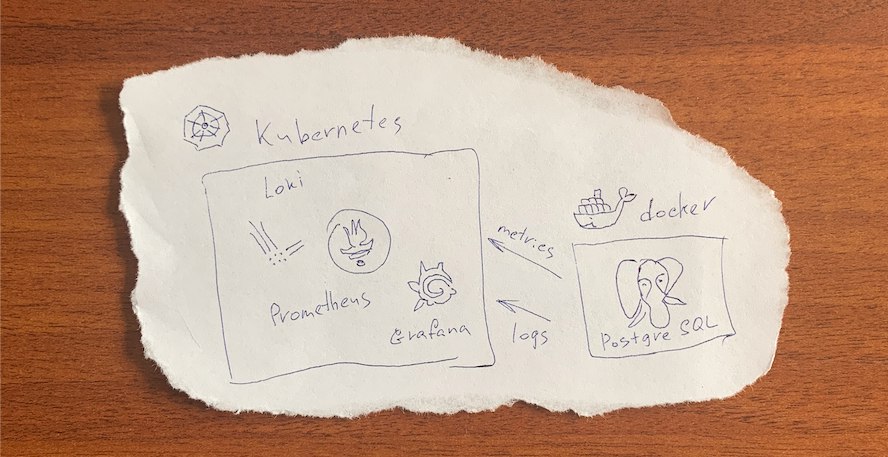 Kubernetes
Loki
Prometheus
Grafana
metrics
logs
docker
Postgre SQL